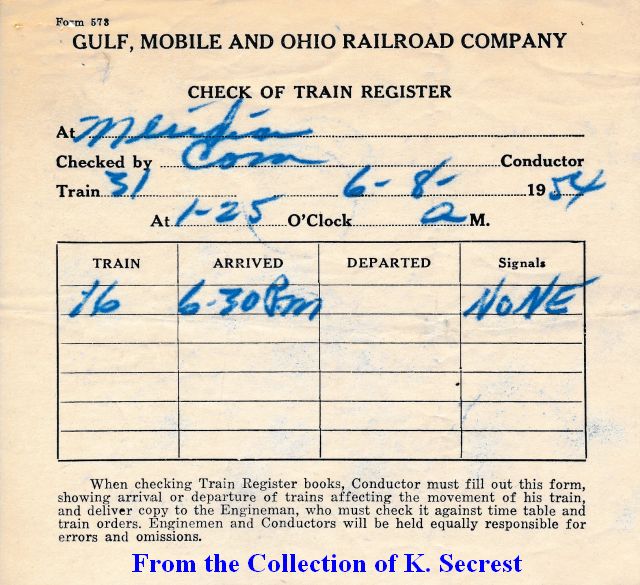 Form 573
GULF, MOBILE AND OHIO RAILROAD COMPANY
CHECK OF TRAIN REGISTER
At Meridian
Checked by Com Conductor
Train 31 6-8- 1954
At 1-25 O'Clock a M.
TRAIN ARRIVED DEPARTED Signals
16 6-30 Pm NONE
When checking Train Register books, Conductor must fill out this form,
showing arrival or departure of trains affecting the movement of his train,
and deliver copy to the Engineman, who must check it against time table and
train orders. Enginemen and Conductors will be held equally responsible for
errors and omissions.
From the Collection of K. Secrest